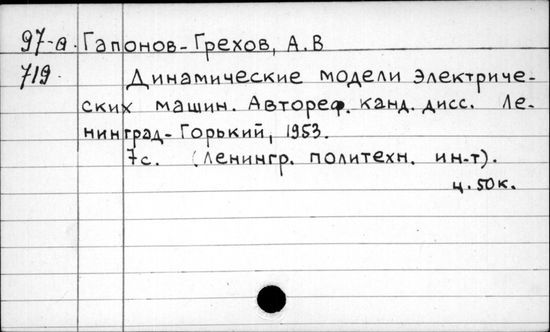 97-а. Гапонов-Грехов, А.В
719. Динамические модели электриче-
ских машин. Автореф. канд. дисс. Ле-
нинград-Горький, 1953.
7с. (Ленингр. политехн. ин-т).
ц. 50к.